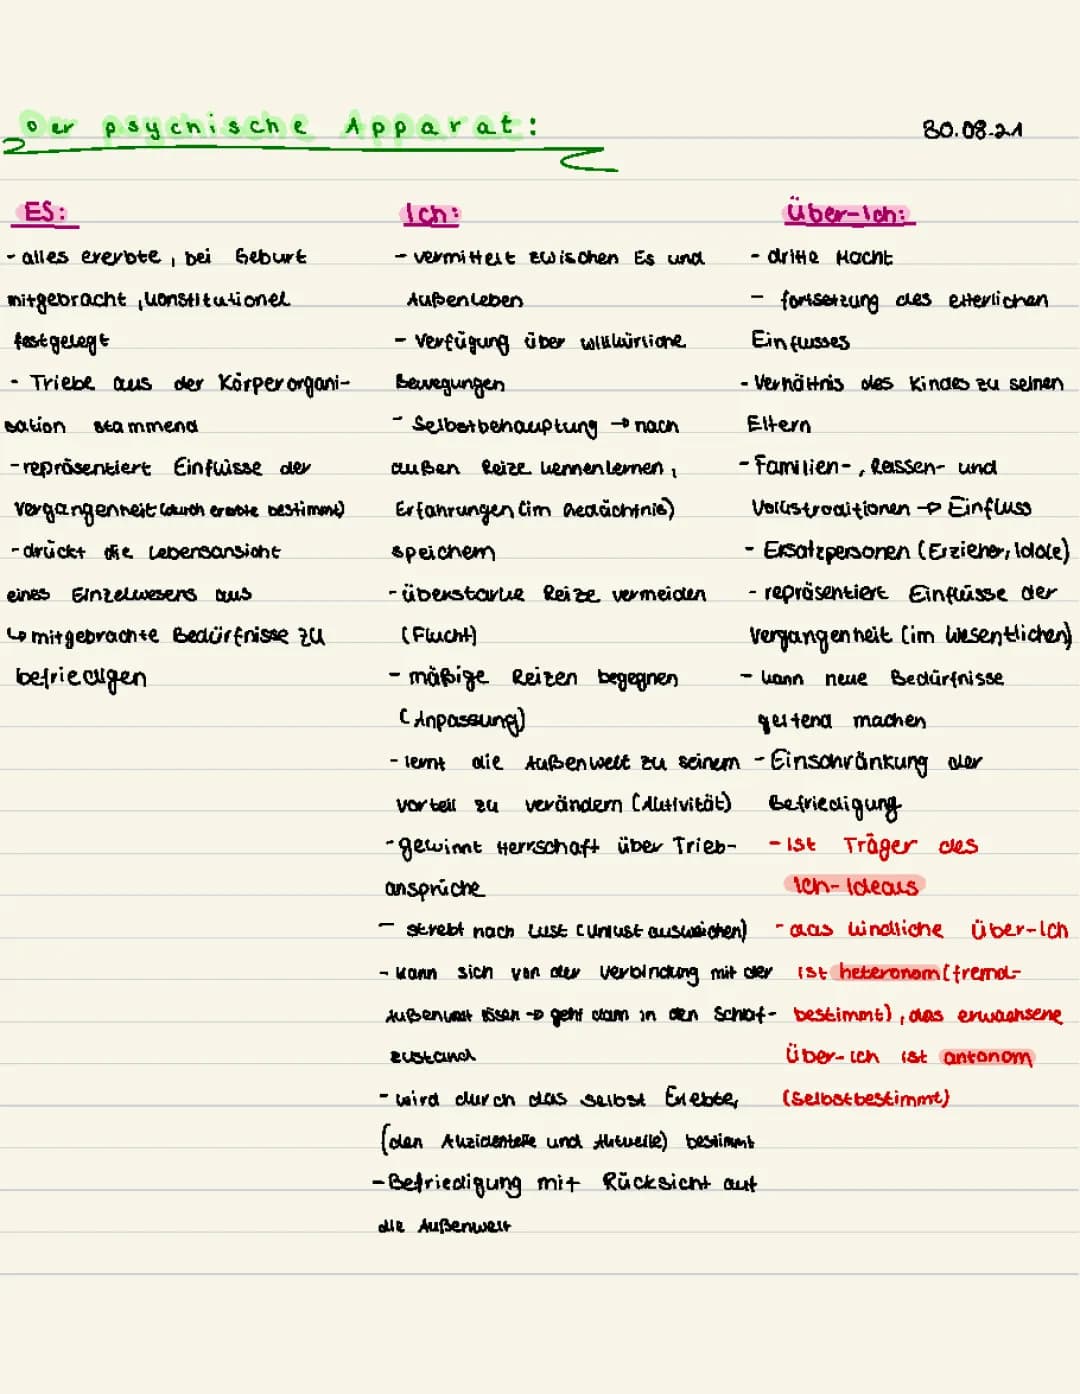 Der psychische Apparat:
30.08.21
ES:
- alles ererbte, bei Geburt
mitgebracht, konstitutionel
festgelegt
- Triebe aus der Körperorgani-
sation stammend
- repräsentiert Einflüsse der
Vergangenheit (durch ererbte bestimmt)
- drückt die Lebensansicht
eines Einzelwesens aus
↳ mitgebrachte Bedürfnisse zu
befriedigen
Ich:
- vermittelt zwischen Es und
Außenleben
- Verfügung über willkürliche
Bewegungen
- Selbstbehauptung → nach
außen Reize kennenlernen,
Erfahrungen (im Gedächtnis)
speichern
- überstarke Reize vermeiden
(Flucht)
- mäßige Reizen begegnen
(Anpassung)
- lernt die Außenwelt zu seinem
Vorteil zu verändern (Aktivität)
- gewinnt Herrschaft über Trieb-
ansprüche
- strebt nach Lust (Unlust ausweichen)
- kann sich von der Verbindung mit der
Außenwelt lösen → geht dann in den Schlaf-
zustand
- wird durch das selbst Erlebte,
(den Akzidentelle und Aktuelle) bestimmt
- Befriedigung mit Rücksicht auf
die Außenwelt
Über-Ich:
- dritte Macht
- fortsetzung des elterlichen
Einflusses
- Verhältnis des Kindes zu seinen
Eltern
- Familien-, Rassen- und
Volkstraditionen → Einfluss
- Ersatzpersonen (Erzieher, Idole)
- repräsentiert Einflüsse der
Vergangenheit (im Wesentlichen)
- kann neue Bedürfnisse
geltend machen
- Einschränkung der
Befriedigung
- Ist Träger des
Ich-Ideals
- das kindliche Über-Ich
ist heteronom (fremd-
bestimmt), das erwachsene
Über-Ich ist antonom
(Selbstbestimmt)